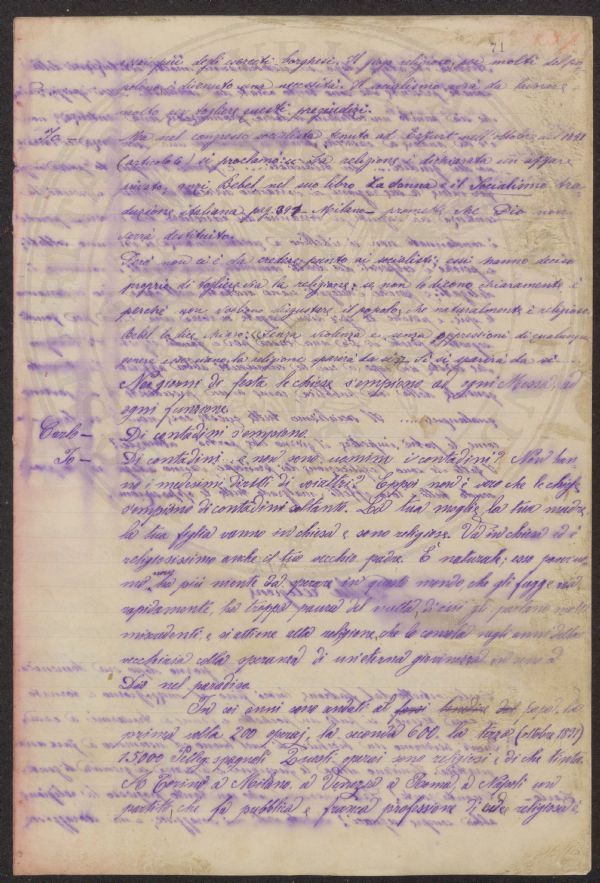 71
più degli eserciti borghesi. Il giogo religioso, per molti del po-
polo è divenuto una necessità. Il socialismo avrà da lavorare
molto per togliere questi pregiudizi.
Io — Ma nel congresso socialista tenuto ad Erfurt nell'ottobre del 1891
(articolo 6) si proclamò: La religione è dichiarata un affare
privato, anzi Bebel nel suo libro La donna e il Socialismo tra-
duzione italiana pag. Milano — promette che Dio non
verrà destituito.
Però non ci è da credere punto ai socialisti; essi hanno deciso
proprio di togliere via la religione; se non lo dicono chiaramente è
perché non vogliono disgustare il popolo, che naturalmente è religioso.
Bebel lo dice chiaro: Senza violenza e senza oppressioni di qualunque
genere la religione sparirà da sè. Sì si sparirà da sè
Nei giorni di festa le chiese s'empiono ad ogni Messa, ad
ogni funzione.
Carlo — Di contadini s'empiono.
Io — Di contadini.. e non sono uomini i contadini? Non han-
no i medesimi diritti di voialtri? Eppoi non è vero che le chiese
s'empiono di contadini soltanto. La tua moglie, la tua madre,
la tua figlia vanno in chiesa e sono religiose. Va in chiesa ed è
religiosissimo anche il tuo vecchio padre. È naturale; esso
non ha più niente da sperare in questo mondo che gli fugge
rapidamente, ha troppa paura del nulla, di cui gli parlano
miscredenti, e si attiene alla religione, che lo consola negli anni della
vecchiaia colla speranza di un'eterna giovinezza in seno a
Dio nel paradiso.
In sei anni sono andati al Papa, la
prima volta 200 operaj, la seconda 600. la terza (ottobre 1891)
15000 Pelleg. spagnoli Questi operai sono religiosi e di che tinta.
A Torino a Milano, a Venezia a Roma, a Napoli un
partito, che fa pubblica e franca professione di fede religiosa è